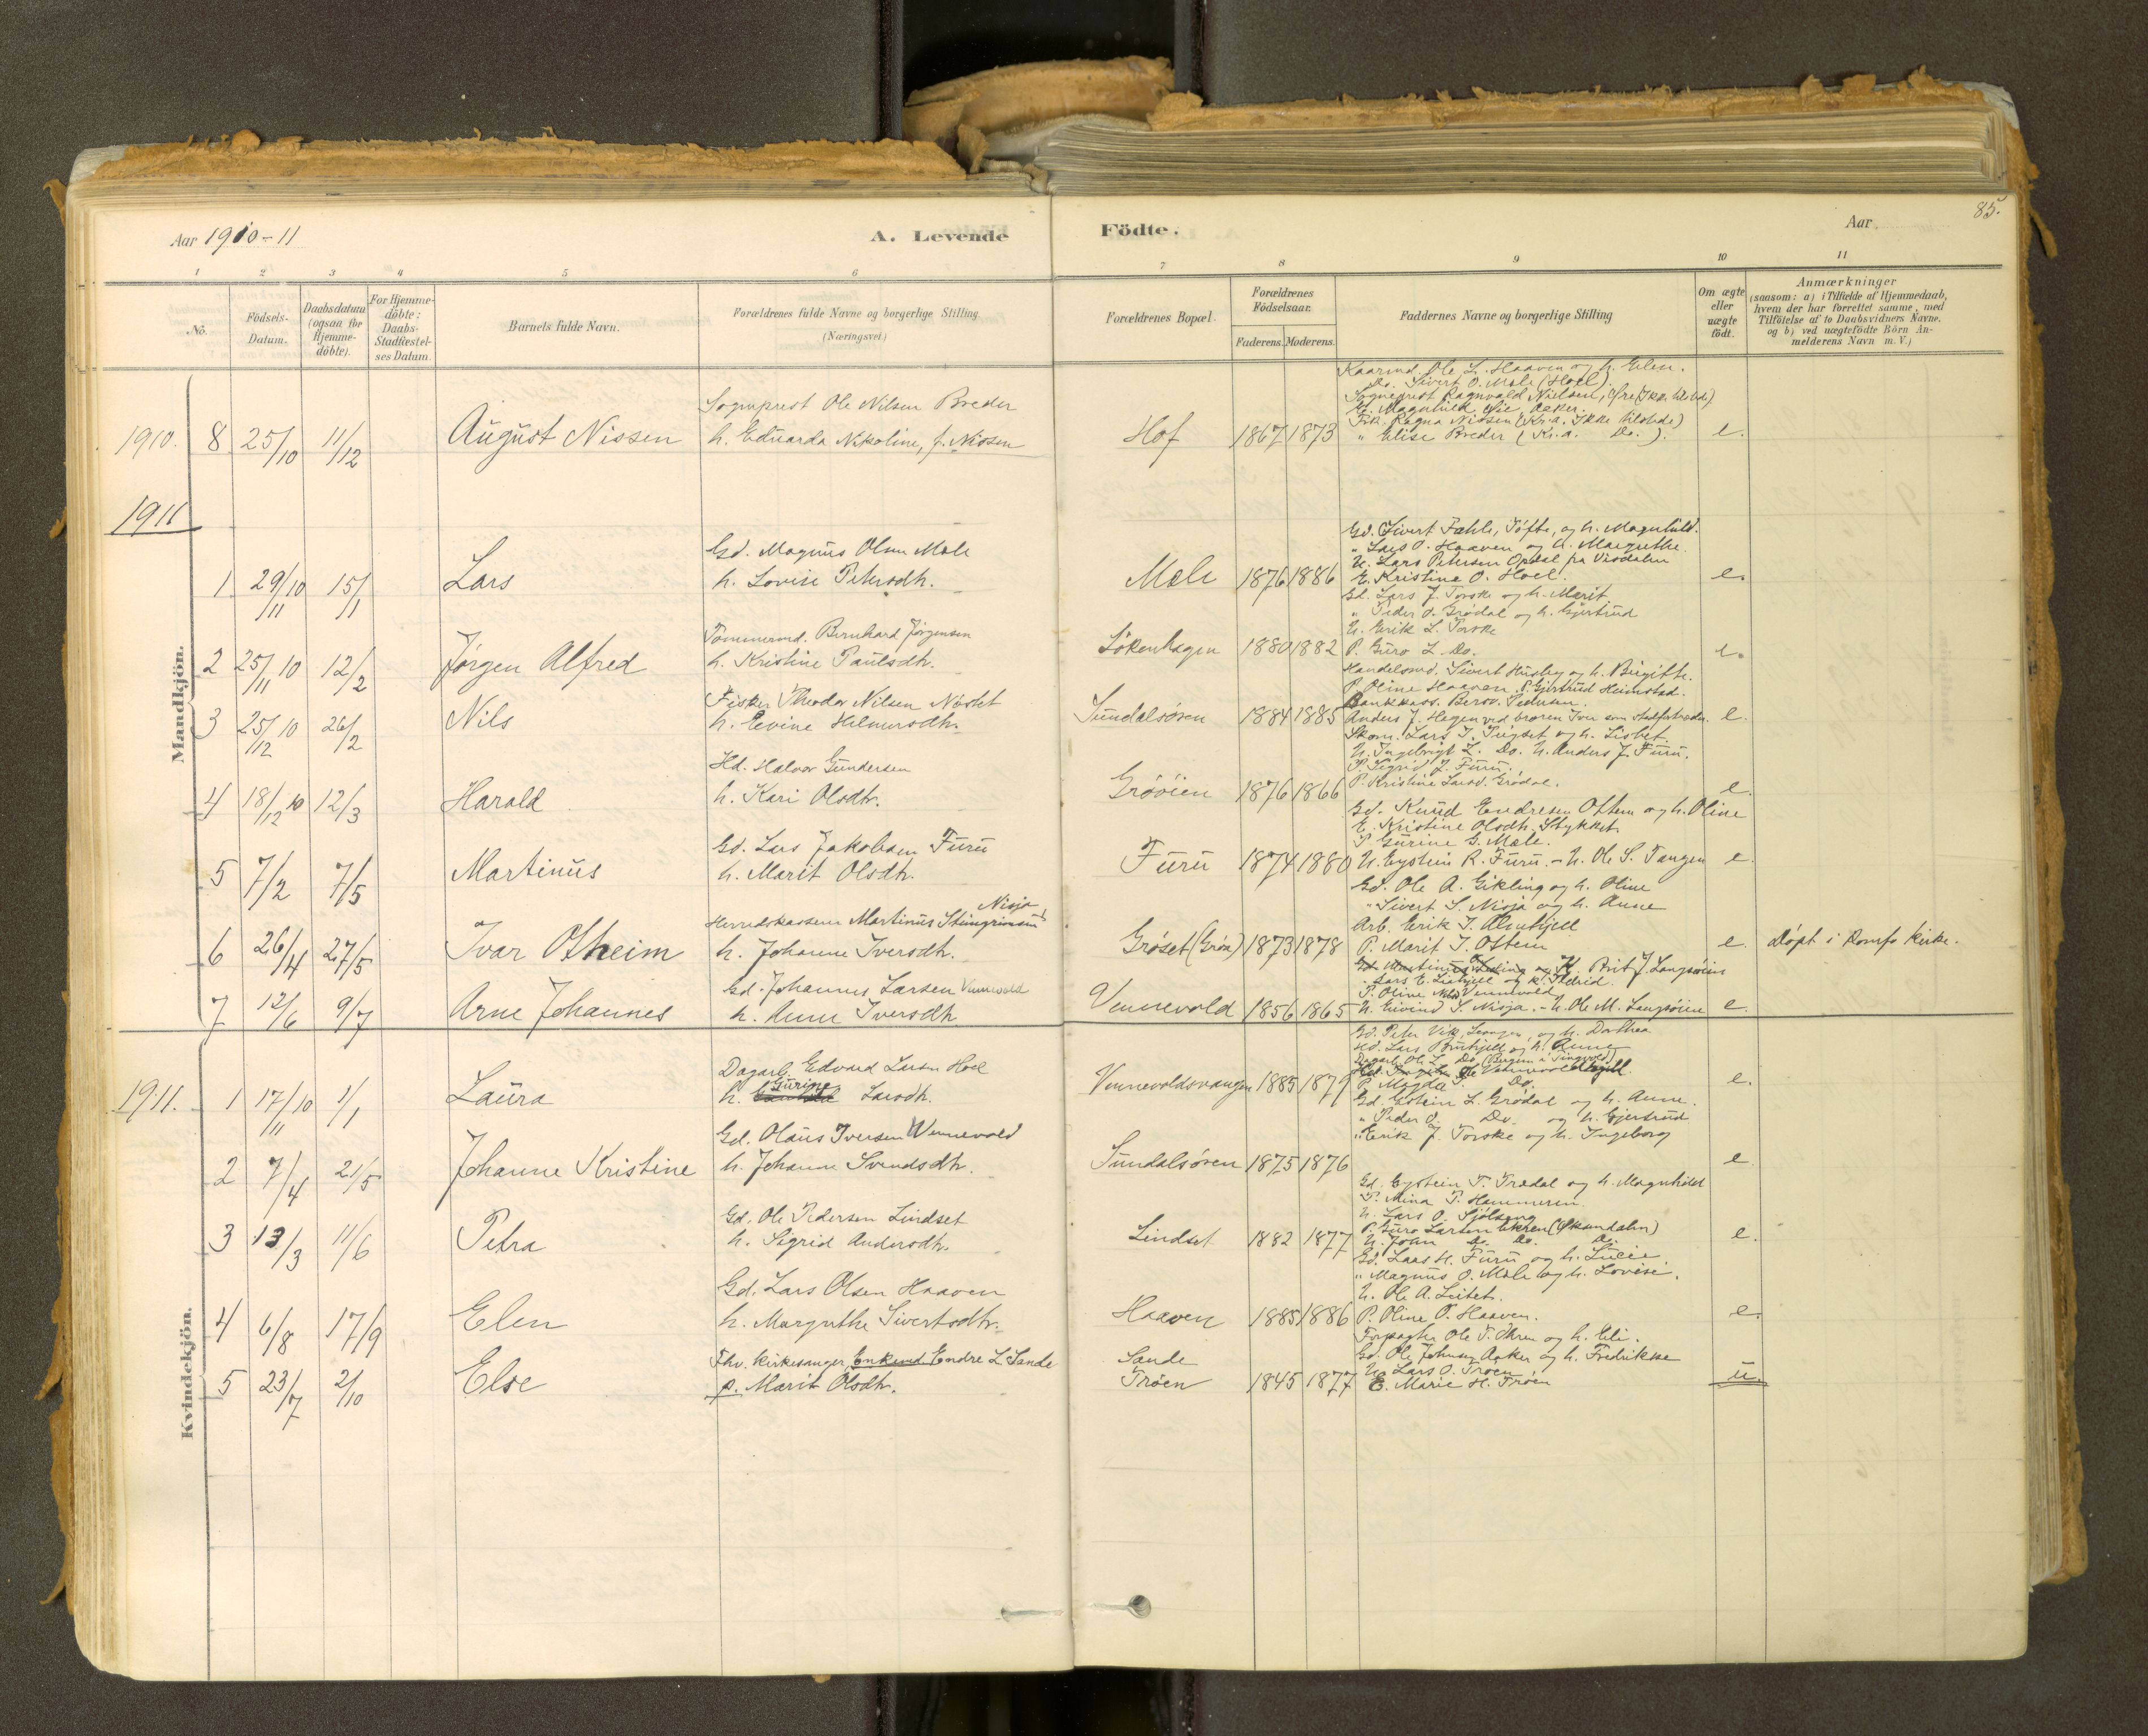 Aar 1910-11
A. Levende Födte.
Aar
85.
1 2 3 4 5 6 7 8 9 10 11
No.
Födsels-Datum.
Daabsdatum (ogsaa for Hjemme-döbte).
For Hjemme-döbte: Daabs-Stadfæstel-ses Datum.
Barnets fulde Navn.
Forældrenes fulde Navne og borgerlige Stilling (Næringsvei)
Forældrenes Bopæl.
Forældrenes Födselsaar.
Faderens. Moderens.
Faddernes Navne og borgerlige Stilling
Om ægte eller uægte födt.
Anmærkninger
(saasom: a) i Tilfælde af Hjemmedaab,
hvem der har forrettet samme, med
Tilföielse af to Daabsvidners Navne.
og b) ved uægtefödte Börn An-
melderens Navn m. V.)
Mandkjön.
1910. 8 25/10 11/12 August Nissen
Sogneprest Ole Nilsen Breder
h. Eduarda Nikoline, f. Nissen
Hof 1867 1873
Kaarmd. Ole L. Haaven og h. Elen.
Do. Sivert O. Mæle (Hoel).
Sogneprest Ragnvald Nielsen,
Frk. Ragna Nissen (Kr.a. Ikke tilstede)
" Elise Breder (Kr.a. Do.).
e.
1911
1 29/11 10 15/1 Lars
Gd. Magnus Olsen Mæle
h. Lovise Petersdtr.
Mæle 1876 1886
Gd. Sivert Fahle, Tøfte, og h. Magnhild.
" Lars O. Haaven og h. Margrethe.
U. Lars Petersen Opdal fra Visdalen
E. Kristine O. Hoel.
e.
2 25/11 10 12/2 Jørgen Alfred
Tømmermd. Bernhard Jørgensen
h. Kristine Paulsdtr.
Løkenhagen 1880 1882
Gd. Lars J. Torske og h. Marit.
" Peder O. Grødal og h. Gjertrud
U. Erik L. Torske
P. Guro L. Do.
e.
3 25/12 10 26/2 Nils
Fisker Theodor Nilsen Nøstet
h. Eevine Helmersdtr.
Sundalsøren 1884 1885
Handelsmd. Sivert Husby og h. Birgitte.
P. Oline Haaven, P. Gjertrud Heimstad.
Bankkass. Bersv. Pedersen.
Anders J. Hagen ved broren Iver som stedfortræder.
e.
4 18/12 10 12/3 Harald
Hd. Halvor Gundersen
h. Kari Olsdtr.
Grøvien 1876 1866
Skom. Lars I. Tugset og h. Lisbet.
U. Ingebrigt L. Do. U. Anders J. Furu.
P. Sigrid J. Furu.
P. Kristine Larsd. Grødal.
e.
5 7/2 7/5 Martinus
Gd. Lars Jakobsen Furu
h. Marit Olsdtr.
Furu 1874 1880
Gd. Knud Endresen Ottem og h. Oline
E. Kristine Olsdtr. Stykket
P. Gurine G. Mæle.
U. Eystein R. Furu. - U. Ole S. Tangen
e.
6 26/4 27/5 Ivar Otheim
Nisja
Herredskasserer Martinus Steingrimsen
h. Johanne Iversdtr.
Grøset (Grøa) 1873 1878
Gd. Ole A. Gikling og h. Oline
" Sivert S. Nisja og h. Anne
Arb. Erik I. Almskjell
P. Marit I. Ottem
e. Døpt i Romfo kirke.
7 12/6 9/7 Arne Johannes
Gd. Johannes Larsen Vennevold
h. Anne Iversdtr
Vennevold 1856 1865
K. Brit J. Langsøien
P. Oline Vennevold
U. Eivind S. Nisja. - U. Ole M. Langsøien
e.
Kvindekjön.
1911. 1 17/11 10 1/1 Laura
Dagarb. Edvard Larsen Hoel
h. Gurine Larsdtr.
Vennevoldsvangen 1885 1879
Gd. Peter Vik, og h. Dorthea
P. Magda Do.
e.
2 7/4 21/5 Johanne Kristine
Gd. Olaus Iversen Vennevold
h. Johanne Svendsdtr.
Sundalsøren 1875 1876
Gd. Estein L. Grødal og h. Anne.
" Peder O. Do. og h. Gjertrud
" Erik J. Torske og h. Ingeborg
e.
3 13/3 11/6 Petra
Gd. Ole Pedersen Lindset
h. Sigrid Andersdtr.
Lindset 1882 1877
Gd. Eystein T. Trædal og h. Magnhild
P. Mina P. Hammeren
U. Lars O. Sjølseng
P. Guro Larsen Ekren (Øksendalen)
U. John Do. Do. Do.
e.
4 6/8 17/9 Elen
Gd. Lars Olsen Haaven
h. Margrethe Sivertsdtr.
Haaven 1885 1886
Gd. Laas H. Furu og h. Lucie.
" Magnus O. Mæle og h. Lovise.
U. Ole A. Seitet.
P. Oline O. Haaven.
e.
5 23/7 2/10 Else
Fhv. Kirkesanger Enkemd. Endre L. Sande
p. Marit Olsdtr.
Sande
Trøen 1845 1877
Forpagter Ole T. Øhren og h. Eli.
Gd. Ole Johnsen Aaker og h. Fredrikke
U. Lars O. Trøen
E. Marie H. Trøen
u.